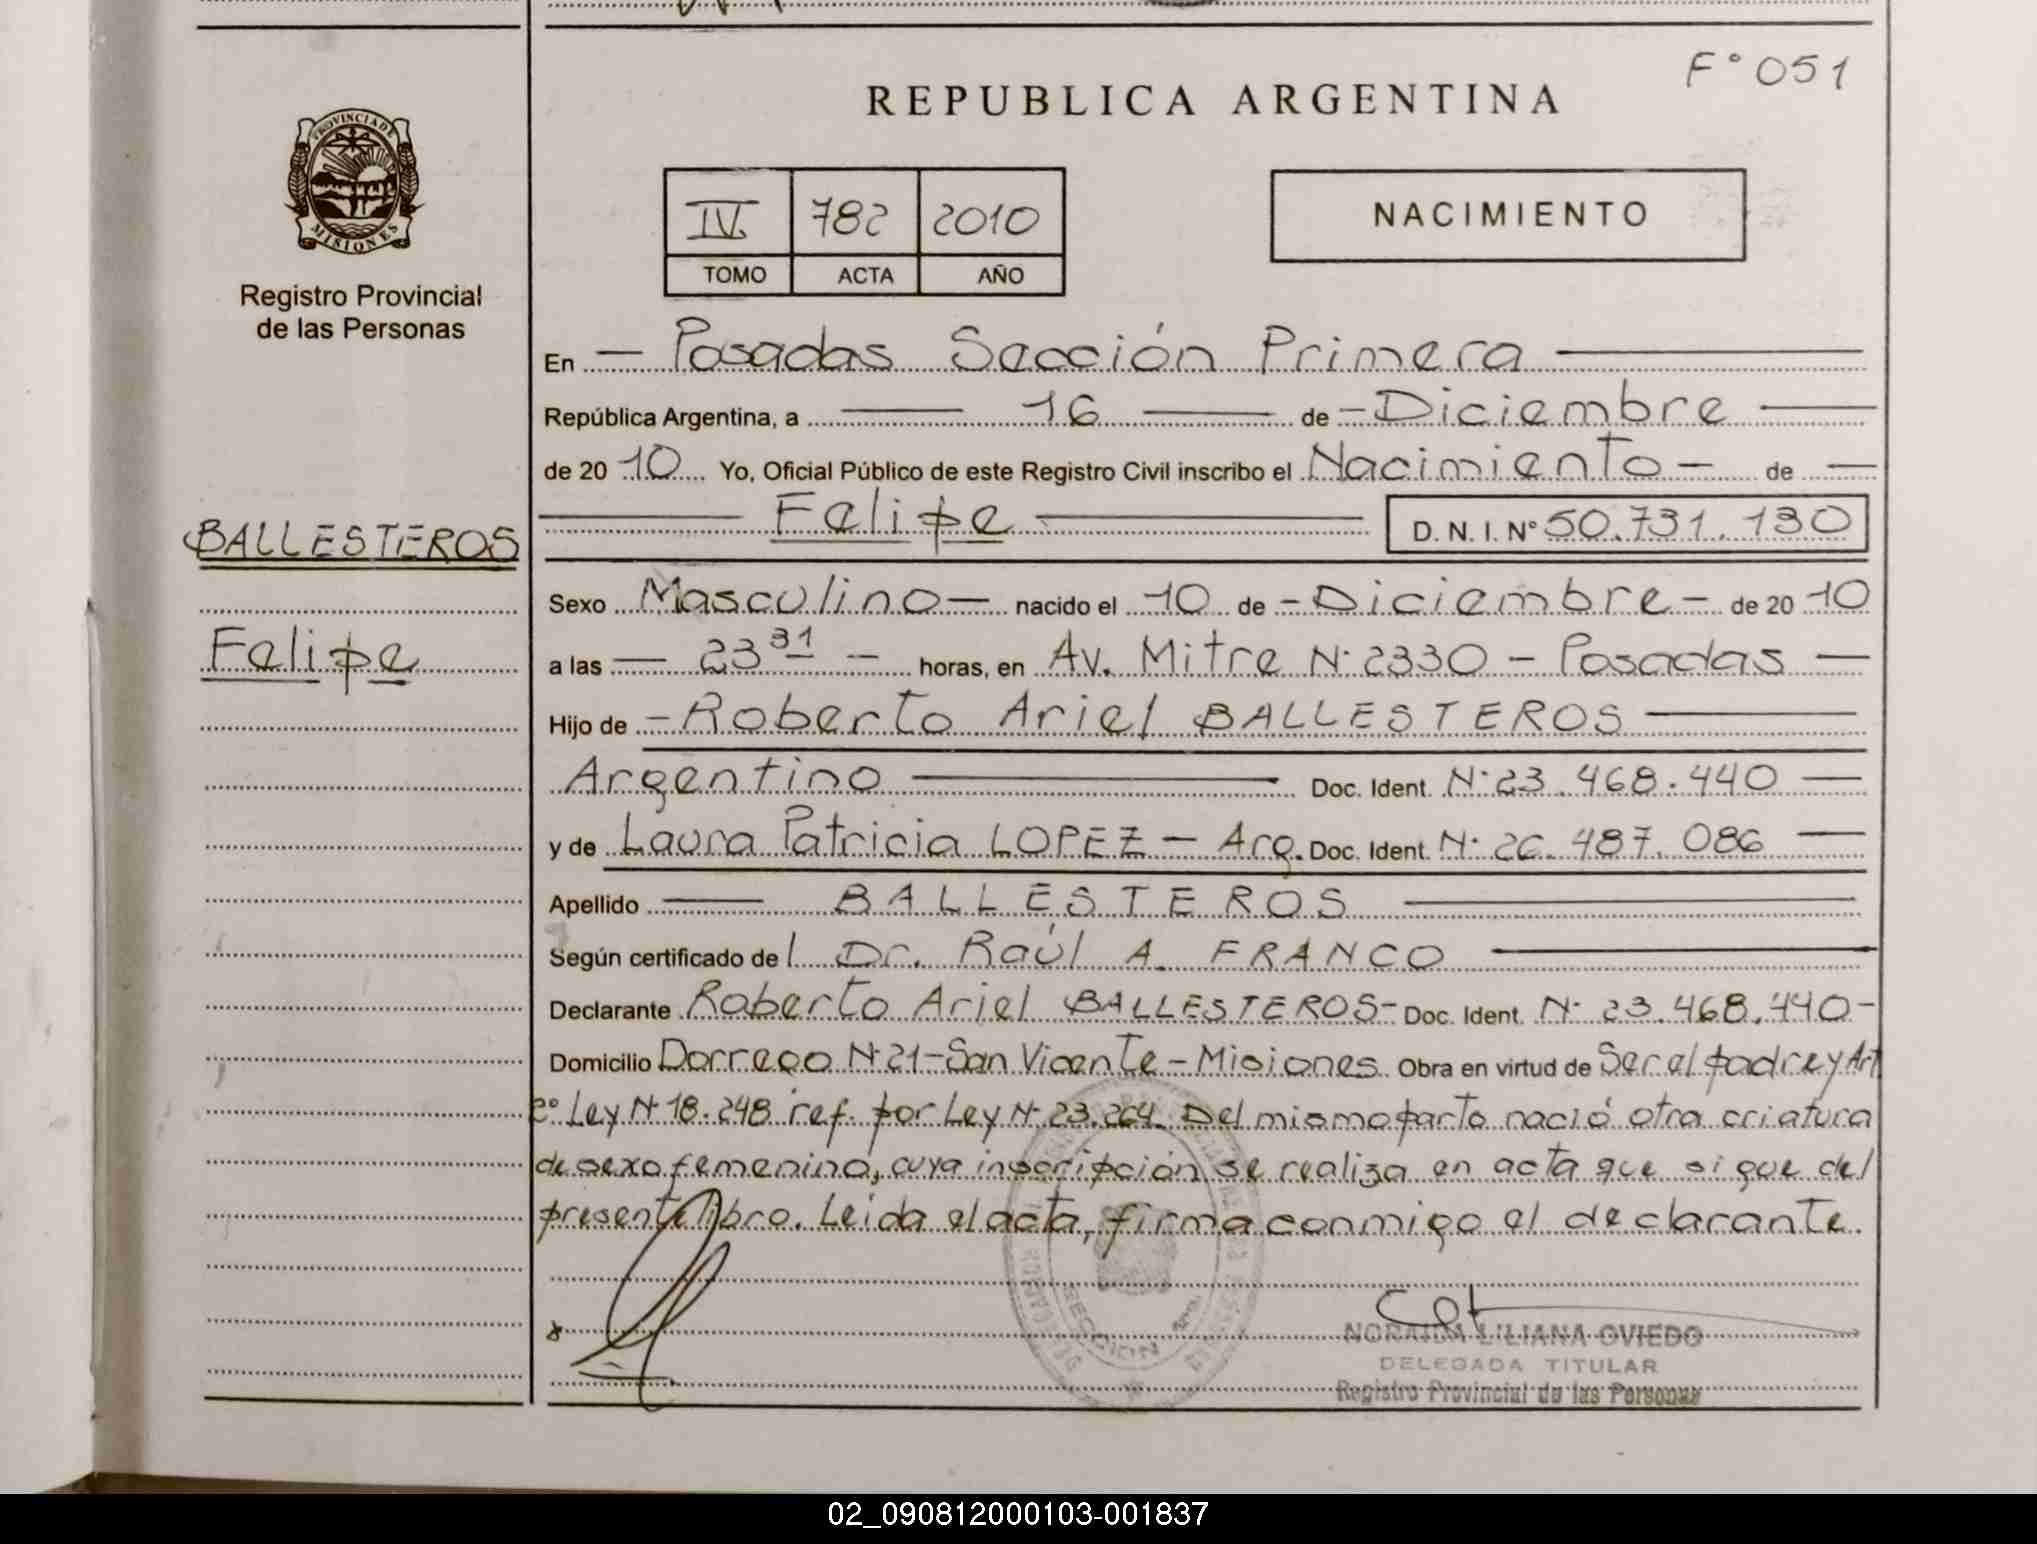 F° 051
REPUBLICA ARGENTINA
PROVINCIA DE
MISIONES
Registro Provincial
de las Personas
IV. 782 2010
TOMO ACTA AÑO
NACIMIENTO
En — Posadas Sección Primera —
República Argentina, a — 16 — de - Diciembre —
de 20 10 Yo, Oficial Público de este Registro Civil inscribo el Nacimiento - de —
BALLESTEROS
— Felipe — D. N. I. N° 50.731.130
Sexo Masculino — nacido el 10 de - Diciembre - de 20 10
Felipe
a las — 23 31 — horas, en Av. Mitre N· 2330 - Posadas —
Hijo de - Roberto Ariel BALLESTEROS —
Argentino — Doc. Ident. N· 23.468.440 —
y de Laura Patricia LOPEZ — Arg. Doc. Ident. N· 26.487.086 —
Apellido — BALLESTEROS —
Según certificado del Dr. Raúl A. FRANCO —
Declarante Roberto Ariel BALLESTEROS - Doc. Ident. N· 23.468.440 -
Domicilio Dorrego N· 21 - San Vicente - Misiones Obra en virtud de Ser el padre y Art
2° Ley N· 18.248 ref. por Ley N· 23.264. Del mismo parto nació otra criatura
de sexo femenino, cuya inscripción se realiza en acta que sigue del
presente libro. Leida el acta, firma conmigo el declarante.
SECCION
NORAIDA LILIANA OVIEDO
DELEGADA TITULAR
Registro Provincial de las Personas
02_090812000103-001837